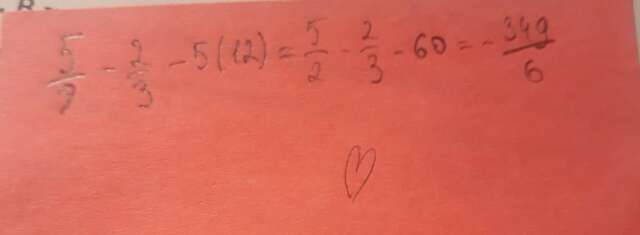 5/2 - 2/3 - 5(12) = 5/2 - 2/3 - 60 = - 349/6